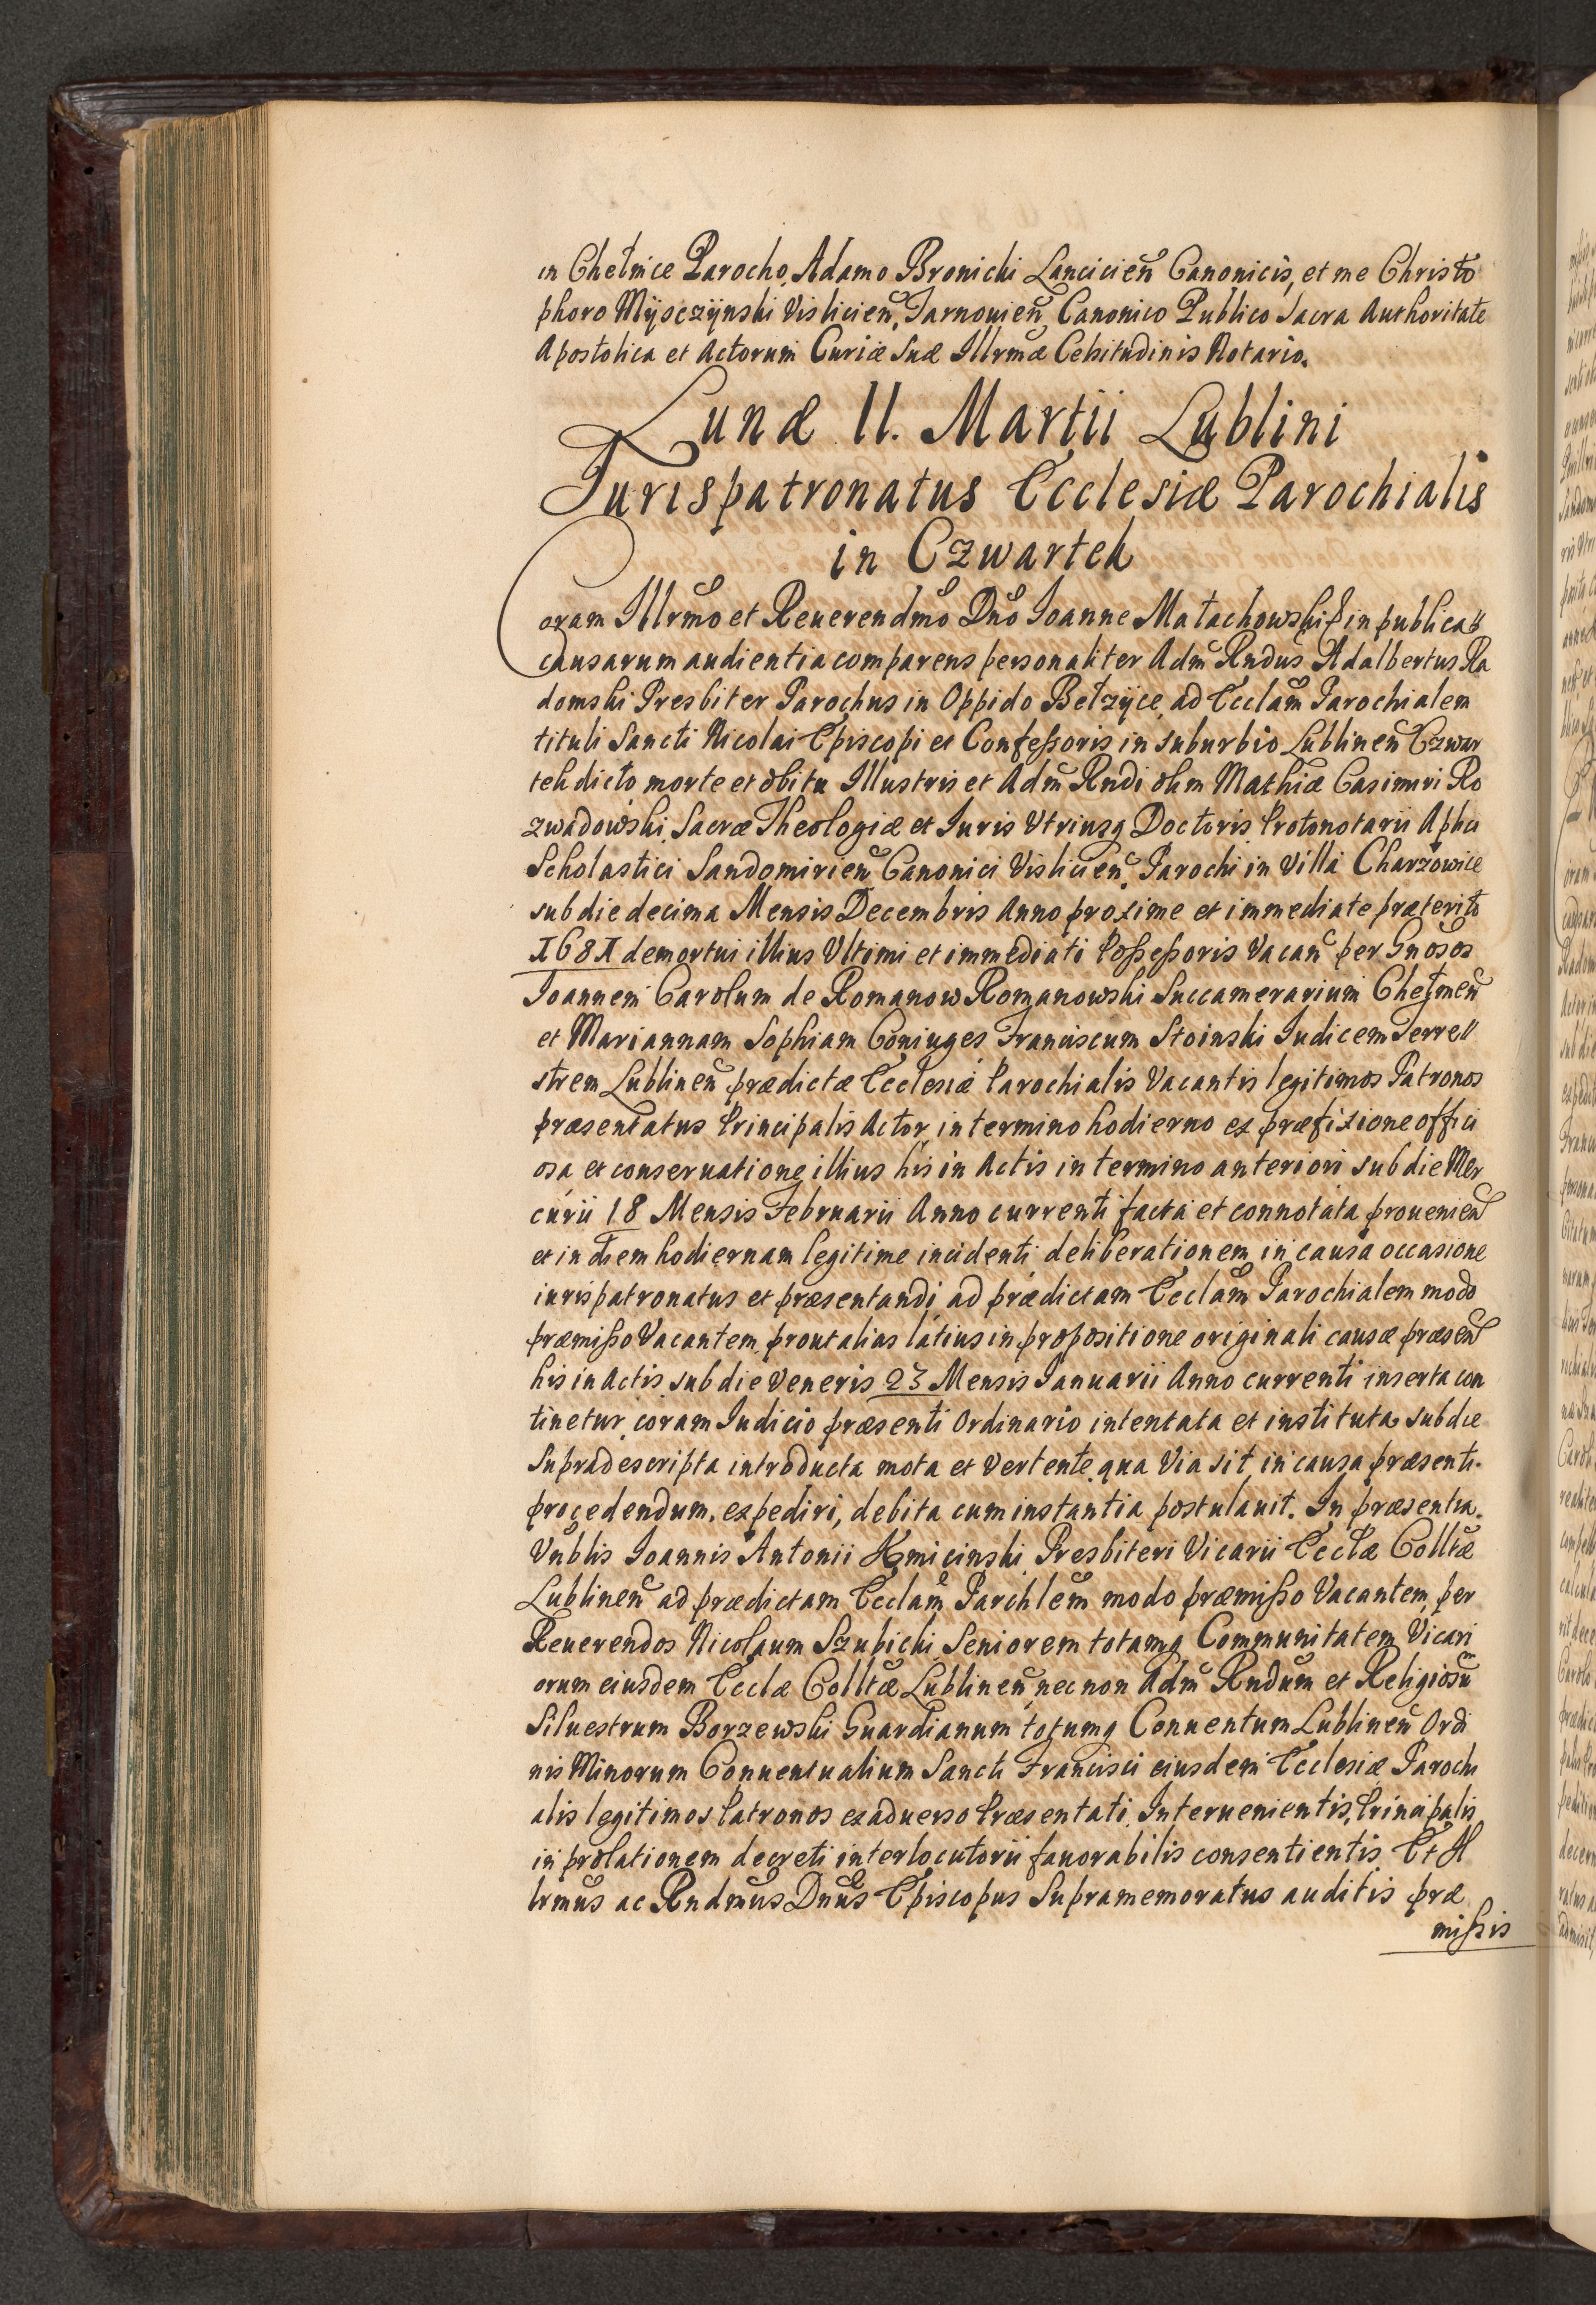 in Chełmce Parocho, Adamo Bronicki Lancicien̄ Canonicis, et me Christo
phoro Mÿsczÿnski Vislicien̄, Tarnouien̄ Canonico Publico Sacra Authoritate
Apostolica et Actorum Curiæ Suæ Illrmæ Celsitudinis Notario.
Lunæ 11. Martii Lublini
Jurispatronatus Ecclesiæ Parochialis
in Czwartek
Coram Illrmo et Reuerendmo Dno Joanne Małachowski in publica
causarum audientia comparens personaliter Adm Rndus Adalbertus Ra
domski Presbiter Parochus in Oppido Bełzÿce, ad Ecclam Parochialem
tituli Sancti Nicolai Episcopi et Confeßoris in suburbio Lublinen̄ Czwar
tek dicto morte et obitu Illustris et Adm Rndi olim Mathiæ Casimiri Ro
zwadowski, Sacræ Theologiæ et Juris Vtriusq Doctoris Protonotarii Aplici
Scholastici Sandomirien̄ Canonici Vislicien̄, Parochi in Villa Charzowice
sub die decima Mensis Decembris Anno proxime et immediate præterito
1681 demortui illius Vltimi et immediati Poßeßoris Vacan̄ per Gnosos
Joannem Carolum de Romanow Romanowski Succamerarium Chełmen̄
et Mariannam Sophiam Coniuges Franciscum Stoinski Judicem Terre
strem Lublinen̄ prædictæ Ecclesiæ Parochialis Vacantis legitimos Patronos
præsentatus Principalis Actor, in termino hodierno ex præfixione offici
osa et conseruatione illius his in Actis in termino anteriori sub die Mer
curii 18 Mensis Februarii Anno currenti facta et connotata prouenien̄
et in diem hodiernam legitime incidenti deliberationem in causa occasione
iurispatronatus et præsentandi ad prædictam Ecclam Parochialem modo
præmißo Vacantem, prout alias latius in propositione originali causæ præsen̄
his in Actis sub die Veneris 23 Mensis Januarii Anno currenti inserta con
tinetur, coram Judicio præsenti Ordinario intentata et instituta sub die
Supradescripta introducta mota et Vertente, qua Via sit in causa præsenti
procedendum, expediri, debita cum instantia postulauit. In præsentia
Vnblis Joannis Antonii Kmicinski, Presbiteri Vicarii Ecclæ Colltæ
Lublinen̄ ad prædictam Ecclam Parchlem modo præmißo Vacantem, per
Reuerendos Nicolaum Szubicki Seniorem totamq Communitatem Vicari
orum eiusdem Ecclæ Colltæ Lublinen̄ nec non Adm Rndum et Religiosum
Siluestrum Borzewski Guardianum totumq Conuentum Lublinen̄ Ordi
nis Minorum Conuentualium Sancti Francisci eiusdem Ecclesiæ Parochi
alis legitimos Patronos ex aduerso Præsentati, Interuenientis, Principalis
in prolationem decreti interlocutorii fauorabilis consentientis Et Il
lrmus ac Rndmus Dnus Episcopus Supramemoratus auditis præ
mißis